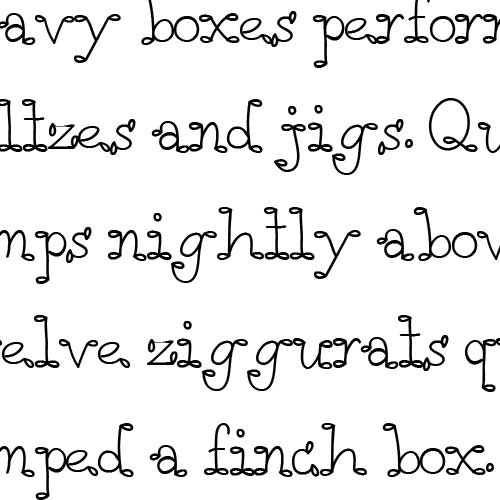 avy boxes perforr
ltzes and jigs. Qu
mps nightly abov
elve ziggurats q
mped a finch box.